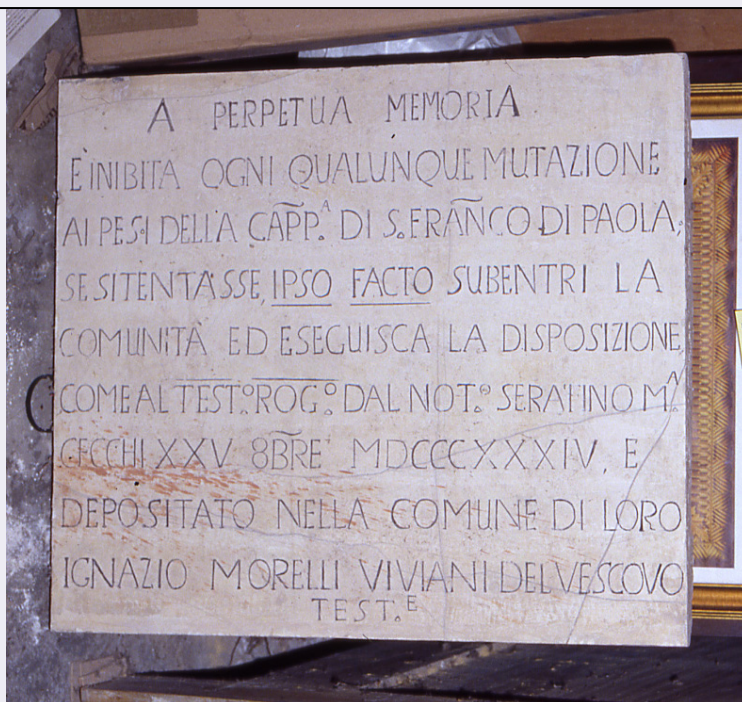 A PERPETUA MEMORIA
È INIBITA OGNI QUALUNQUE MUTAZIONE
AI PESI DELLA CAPP.A DI S. FRANCO DI PAOLA;
SE SI TENTASSE, IPSO FACTO SUBENTRI LA
COMUNITÀ ED ESEGUISCA LA DISPOSIZIONE,
COME AL TEST.O ROG.O DAL NOT.O SERAFINO M.A
CECCHI XXV 8BRE MDCCCXXXIV, E
DEPOSITATO NELLA COMUNE DI LORO
IGNAZIO MORELLI VIVIANI DEL VESCOVO
TEST.E